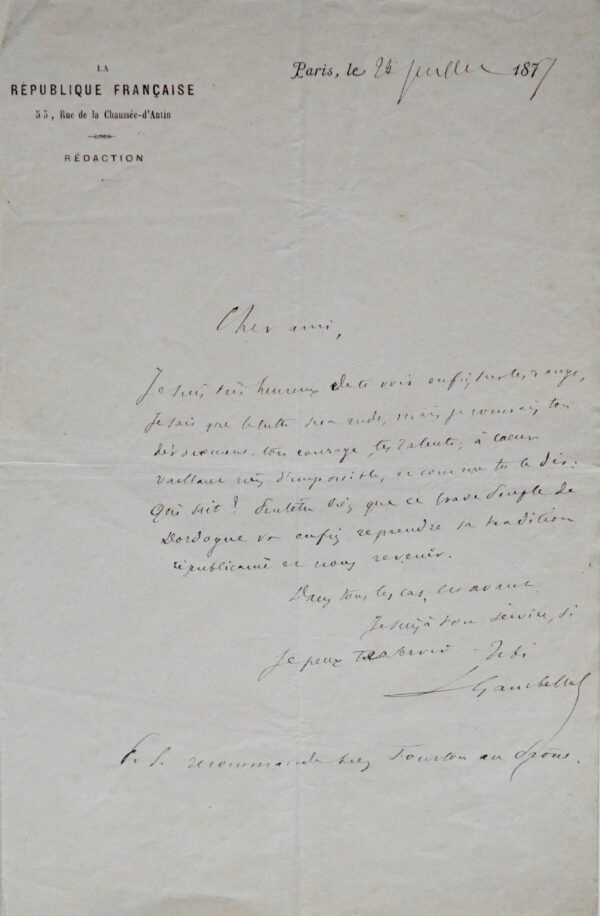 LA
RÉPUBLIQUE FRANÇAISE
53, Rue de la Chaussée-d'Antin
RÉDACTION
Paris, le juillet 1877
Cher ami,
Je suis très heureux de te voir enfin sur les rangs,
Je sais que la lutte sera rude, mais je connais ton
dévouement, ton courage, tes talents, à cœur
vaillant rien d'impossible, et comme tu le dis:
Qui sait? bien que ce brave peuple de
Dordogne va enfin reprendre sa tradition
républicaine et nous revenir.
Dans tous les cas, en avant.
Je suis à ton service, si
Je peux te servir. Tibi
L Gambetta
P. S. recommande bien au